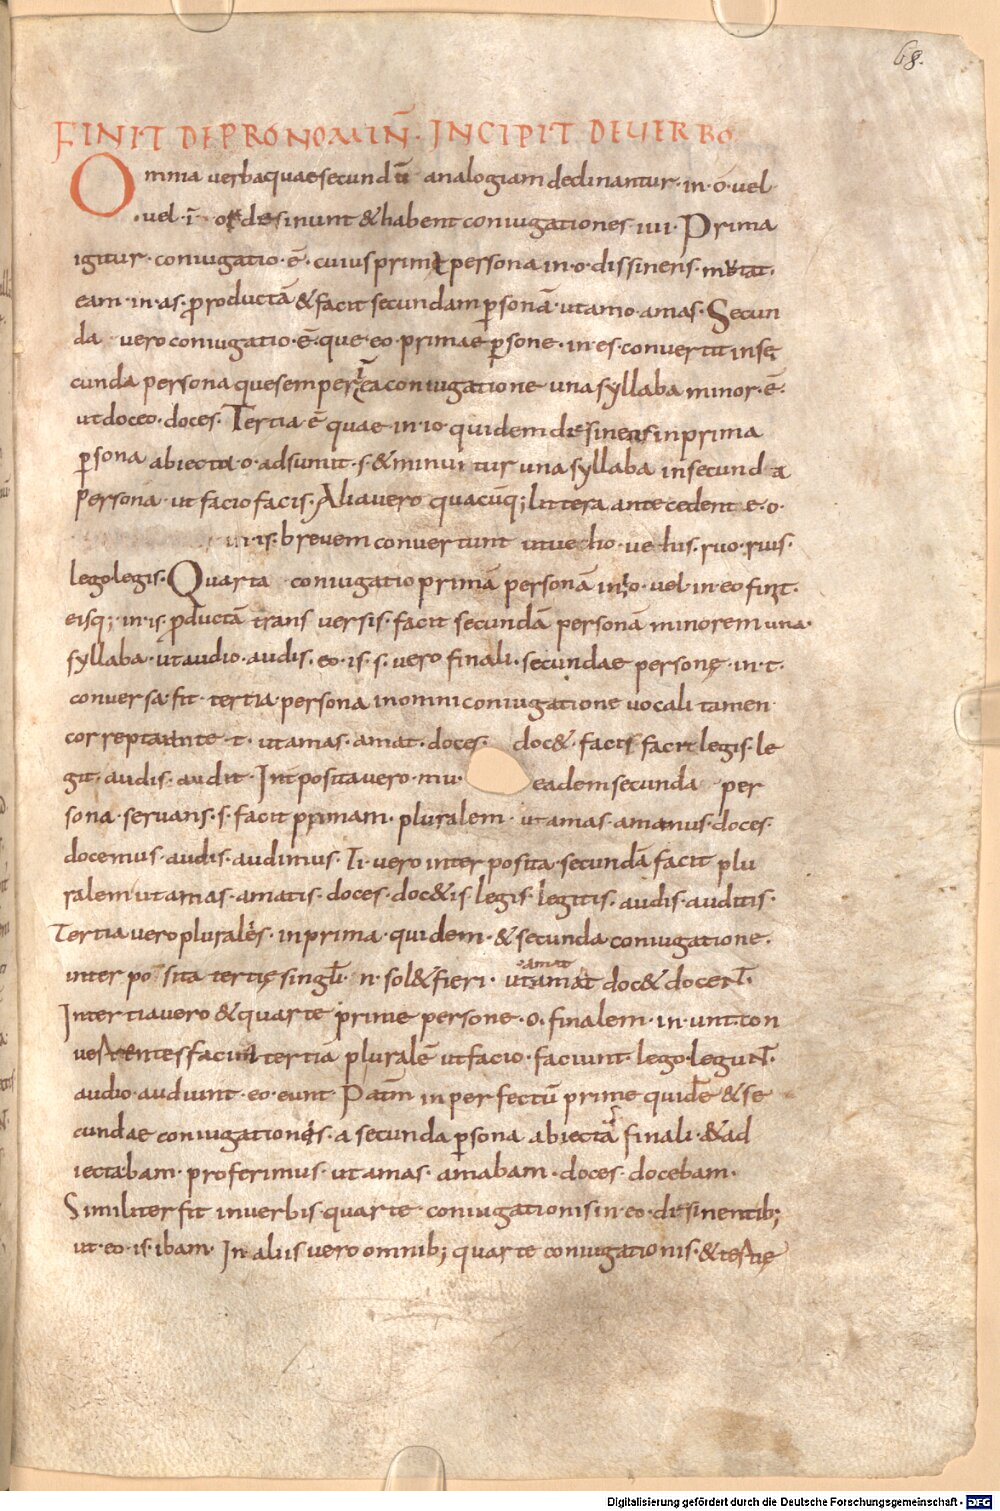 68.
FINIT DE PRONOMIN̄. INCIPIT DE UERBO
Omnia uerba quae secundū analogiam declinantur. in. o. uel
uel. i. or desinunt & habent coniugationes. iiii. Prima
igitur. coniugatio. ē. cuius prime persona in. o. dissinens. mutat.
eam. in. as. productā & facit secundam psonā. ut amo. amas. Secun
da uero coniugatio. ē. que. eo. primae psone. in. es. conuertit in se
cunda persona que semper coniugatione una syllaba minor. ē.
ut doceo. doces. Tertia. ē quae. in. io. quidem desinens in prima
psona abiecta. o. adsumit. s. & minuitur una syllaba in secunda
persona. ut facio facis. Alia uero quacūq; littera antecedente. o.
in. is. breuem conuertunt ut ueho. uehis. ruo. ruis.
lego legis. Quarta coniugatio primā personā in. io. uel. in. eo finit.
eisq; in. is. pductā transuersis. facit secundā personā minorem una.
syllaba. ut audio. audis. eo. is. s. uero finali. secundae personę. in. t.
conuersa. fit. tertia persona in omni coniugatione uocali tamen
correpta ante. t. ut amas. amat. doces. doc&. facis facit legis. le
git. audis. audit. Int posita uero. mu. eadem secunda per
sona. seruans. s. facit primam. pluralem. ut amas. amamus. doces.
docemus. audis. audimus. Ti. uero interposita. secundā facit plu
ralem ut amas. amatis. doces. doc&is legis. legitis. audis. auditis.
Tertia uero pluralis. in prima. quidem. & secunda coniugatione.
interposita tertię singł. n. sol& fieri. ut amat amant doc& docent.
In tertia uero & quarte prime persone. o. finalem. in. unt. con
uertentes faciunt tertiā pluralē ut facio. faciunt. lego. legunt.
audio. audiunt. eo. eunt. inperfectū prime quidē & se
cundae coniugationis. a secunda psona abiectā finali. & ad
iecta. bam. proferimus. ut amas. amabam. doces. docebam.
Similiter fit in uerbis. quarte coniugationis in. eo. desinentib;
ut. eo. is. ibam. In aliis uero omnib; quarte coniugationis. & tertię
Digitalisierung gefördert durch die Deutsche Forschungsgemeinschaft - DFG